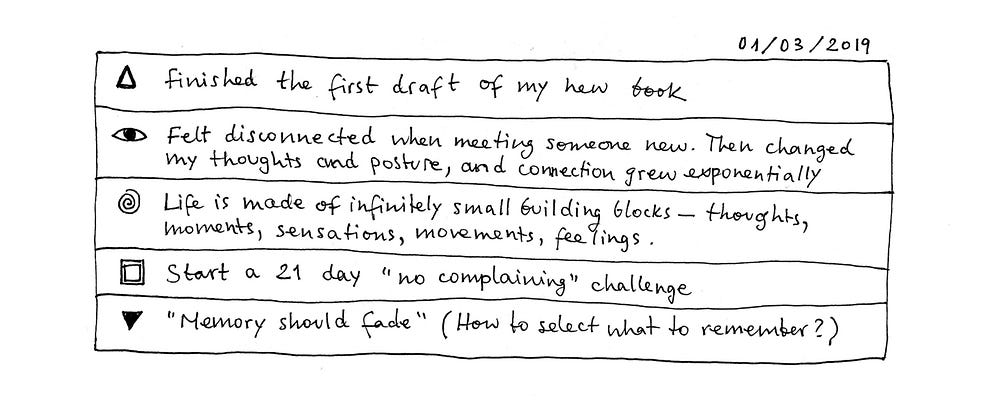 01/03/2019
finished the first draft of my new book
Felt disconnected when meeting someone new. Then changed
my thoughts and posture, and connection grew exponentially
Life is made of infinitely small building blocks – thoughts,
moments, sensations, movements, feelings.
Start a 21 day "no complaining" challenge
"Memory should fade" (How to select what to remember?)